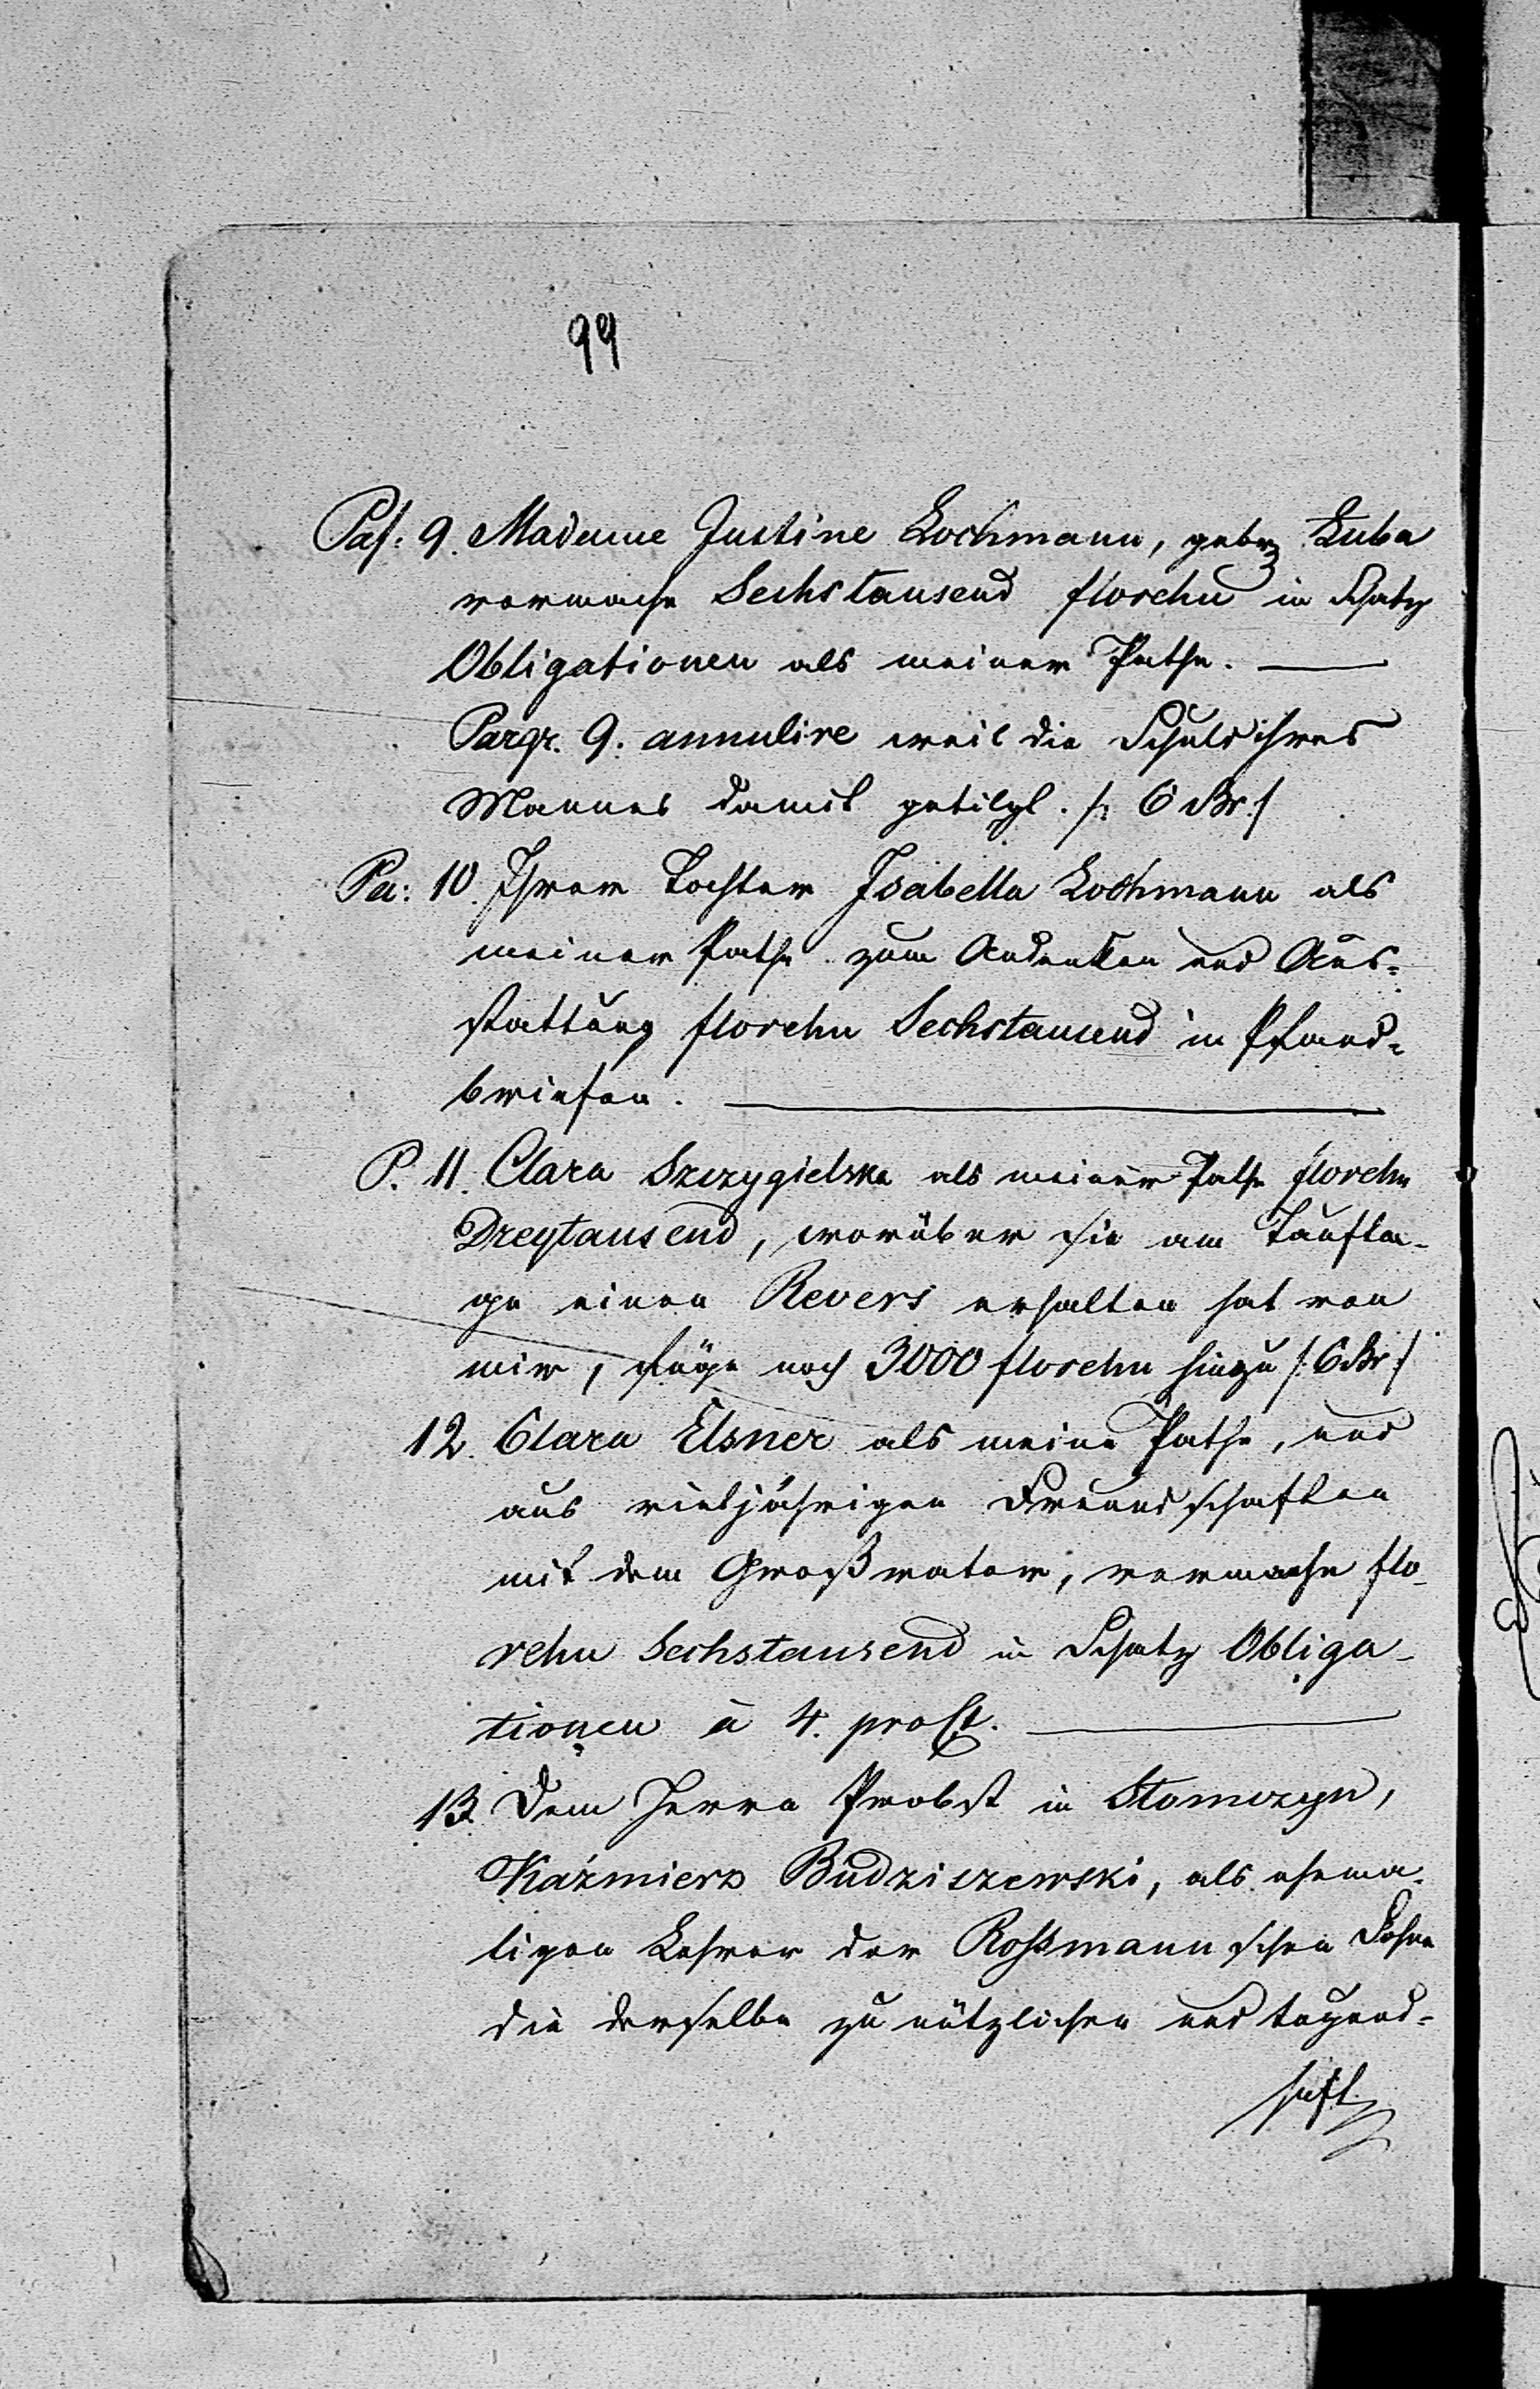 99
Paf: 9. Madame Justine Lochmann, geb: Kuba
vermache Sechstausend florehn in Schatz
Obligationen als meiner Pathe. —
Pargr. 9. annulire weil die Schuld ihres
Mannes damit getilgt. /: 6 Br :/
Pa: 10. Ihrer Tochter Isabella Lochmann als
meiner Pathe zum Andenken und Aus-
stattung florehn Sechstausend in Pfand-
briefen. —
P. 11. Clara Szczygielska als meiner Pathe florehn
Dreytausend, worüber sie am Taufta-
ge einen Revers erhalten hat von
mir, füge noch 3000 florehn hinzu /: 6 Br :/
12. Clara Elsner als meine Pathe, und
aus vieljährigen Freundschaften
mit dem Großvater, vermache flo-
rehn Sechstausend in Schatz Obliga-
tionen à 4. proCt. —
13. Dem Herrn Probst in Słomczyn,
Kaźmierz Budziszewski, als ehema-
ligen Lehrer der Roßmannschen Söhne
die derselbe zu nützlichen und tugend-
haft